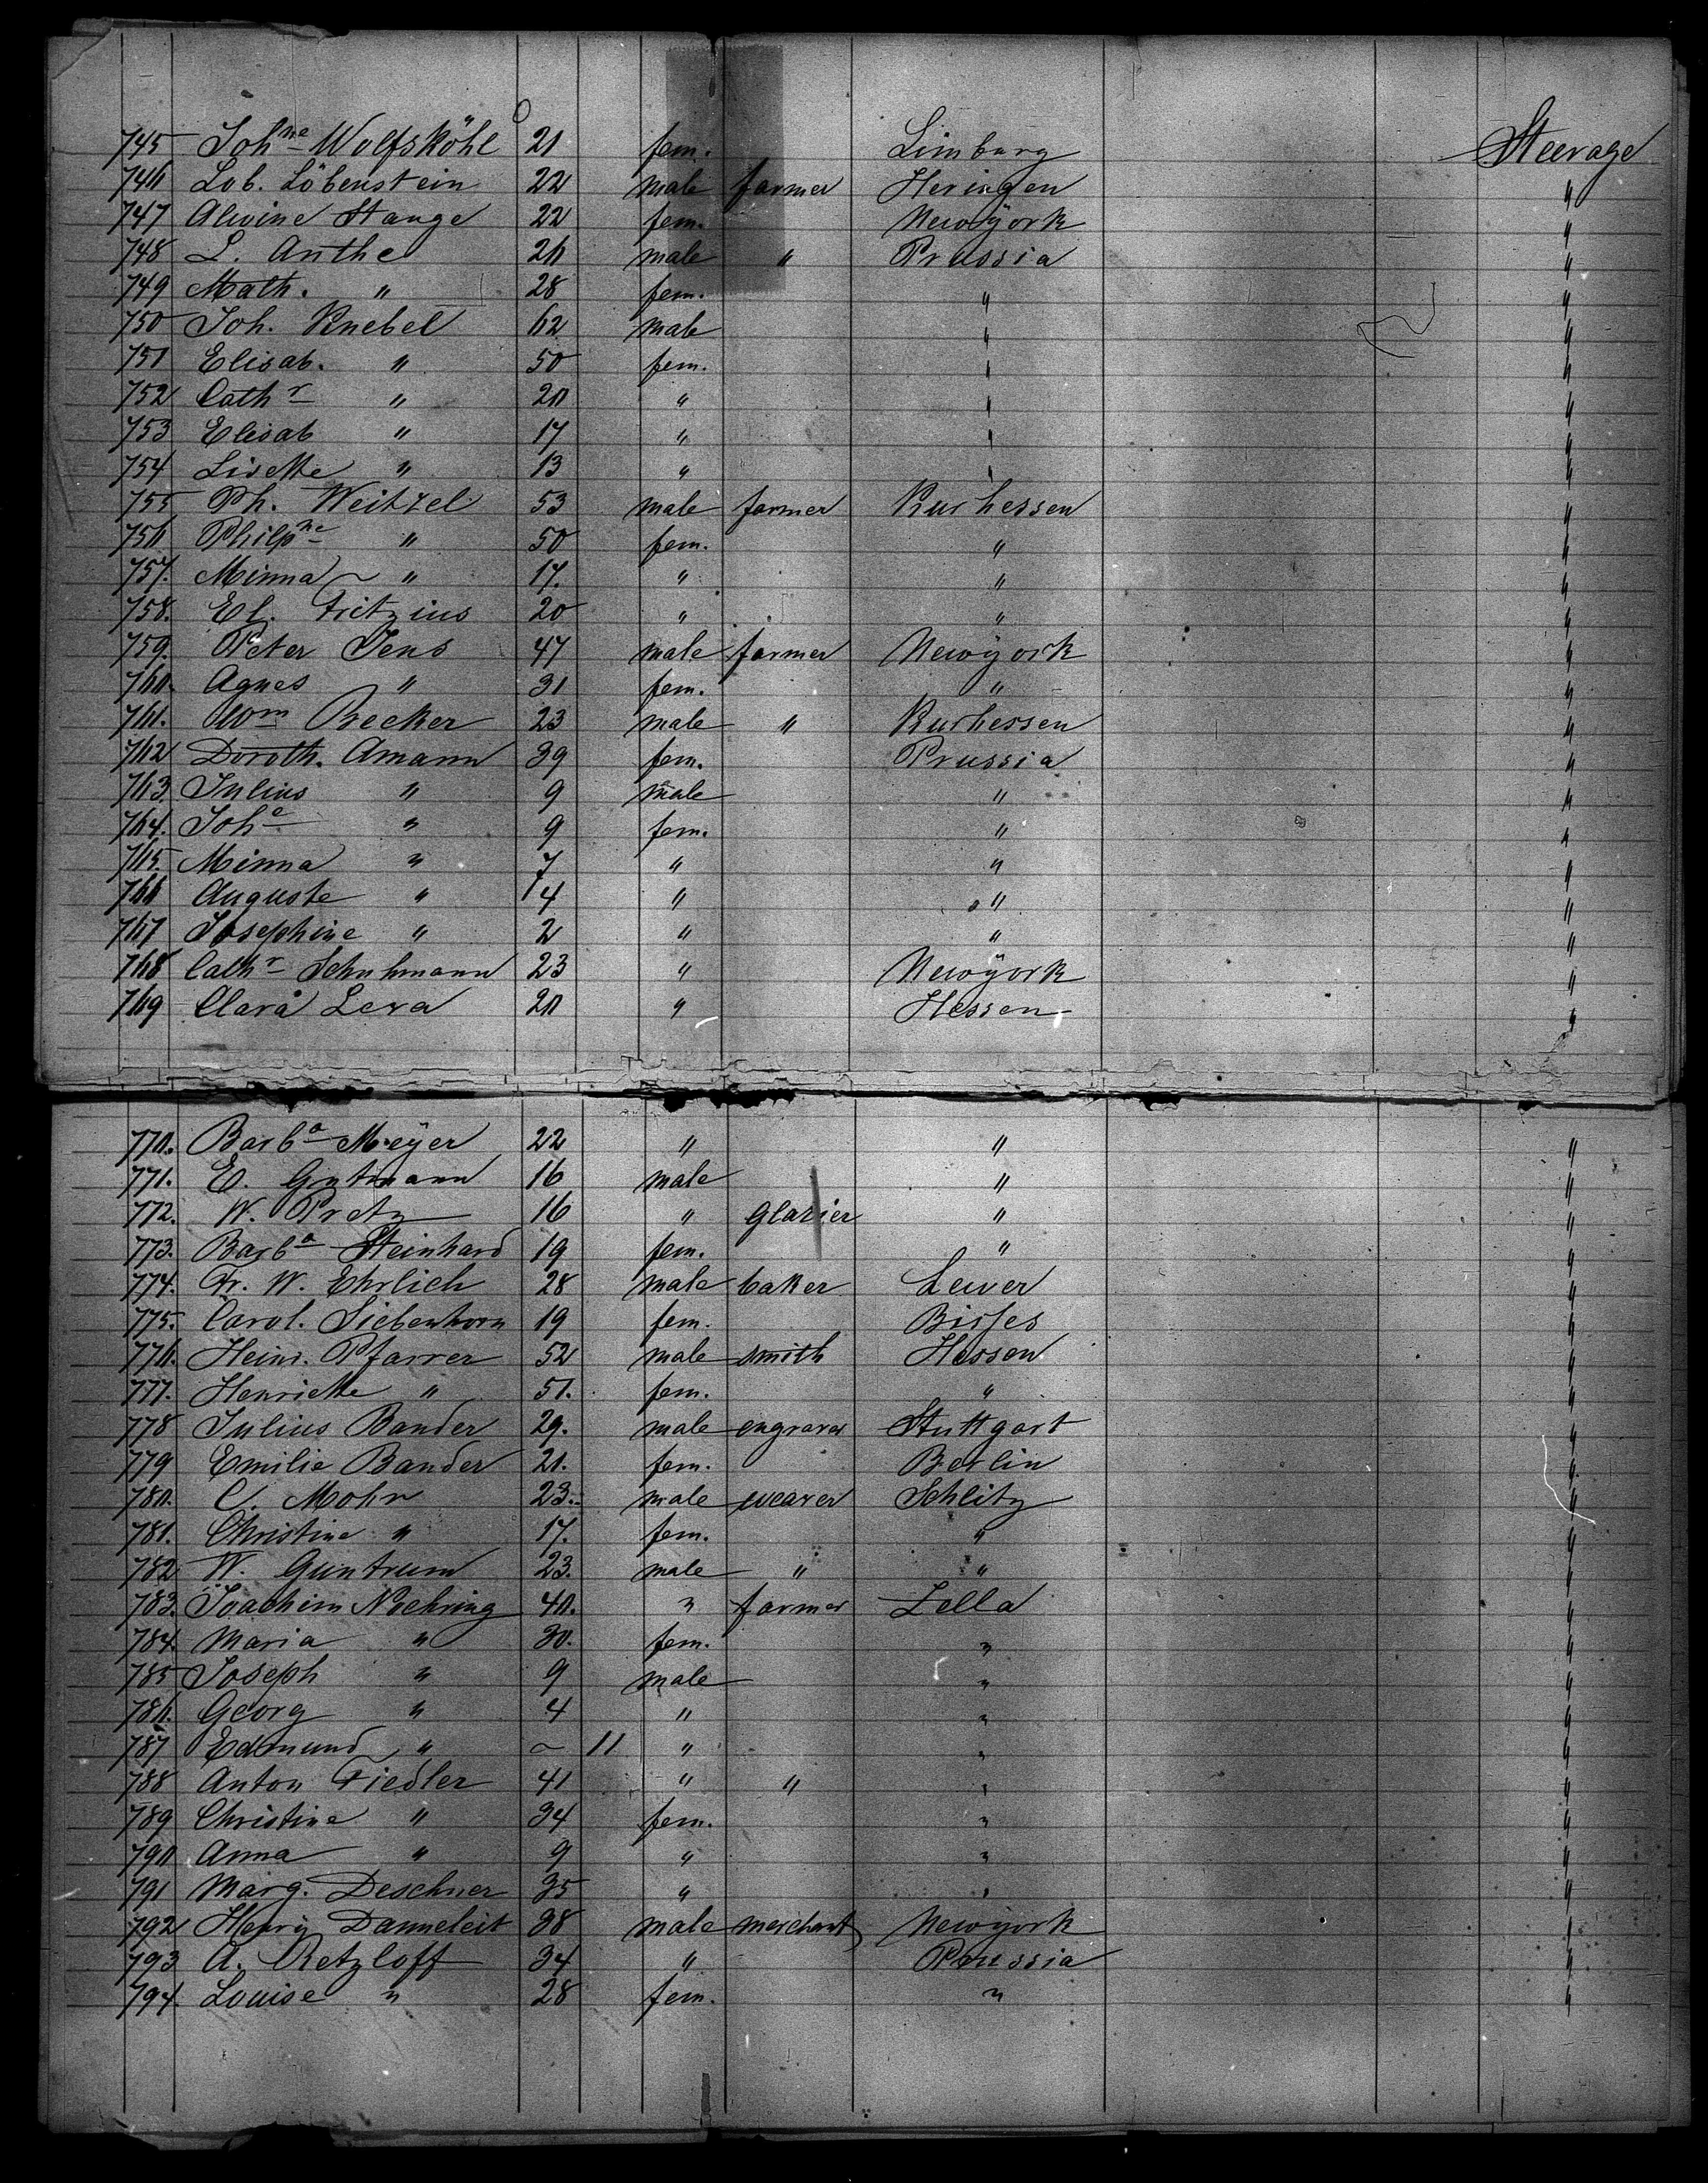 745 Joh^ne Wolfsköhl 21 fem. Limburg Steerage
746 Lob. Löbenstein 22 male farmer Heringen "
747 Alwine Stange 22 fem. Newyork "
748 L. Anthe 20 male " Prussia "
749 Math. " 28 fem. " "
750 Joh. Knebel 62 male " "
751 Elisab. " 50 fem. " "
752 Cath^r " 20 " " "
753 Elisab " 17 " " "
754 Lisette " 13 " " "
755 Ph. Weitzel 53 male farmer Kurhessen "
756 Philp^ne " 50 fem. " "
757. Minna " 17. " " "
758. El. Fritzius 20 " " "
759. Peter Jens 47 male farmer Newyork "
760. Agnes " 31 fem. " "
761. Wm Becker 23 male " Kurhessen "
762 Doroth. Amann 39 fem. Prussia "
763. Julius " 9 male " "
764. Joh^e " 9 fem. " "
765. Minna " 7 " " "
766 Auguste " 4 " " "
767 Josephine " 2 " " "
768 Cath^r Schuhmann 23 " Newyork "
769 Clara Lexa 20 " Hessen "
770. Barb^a Meyer 22 " " "
771. E. Gutmann 16 male " "
772. W. Pretz 16 " glazier " "
773. Barb^a Steinhard 19 fem. " "
774. Fr. W. Ehrlich 28 male baker Lewer "
775. Carol. Siebenhorn 19 fem. Bisses "
776. Heinr. Pfarrer 52 male smith Hessen "
777. Henriette " 51. fem. " "
778 Julius Bander 29. male engraver Stuttgart "
779 Emilie Bander 21. fem. Berlin "
780. C. Mohr 23. male weaver Schlitz "
781. Christine " 17. fem. " "
782 W. Guntrum 23. male " " "
783. Joachim Noehring 40. " farmer Zella "
784. Maria " 30. fem. " "
785 Joseph " 9 male " "
786. Georg " 4 " " "
787 Edmund " ~ 11 " " "
788 Anton Fiedler 41 " " " "
789 Christine " 34 fem. " "
790 Anna " 9 " " "
791 Marg. Deschner 35 " " "
792 Henry Danneleit 38 male merchant Newyork "
793 A. Retzloff 34 " Prussia "
794. Louise " 28 fem. " "